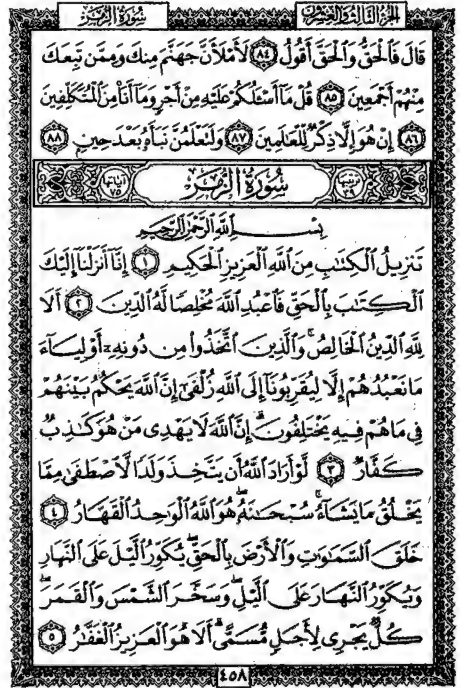 الجزء الثالث والعشرون
سورة الزمر
قَالَ فَالْحَقُّ وَالْحَقَّ أَقُولُ ٨٤ لَأَمْلَأَنَّ جَهَنَّمَ مِنكَ وَمِمَّن تَبِعَكَ
مِنْهُمْ أَجْمَعِينَ ٨٥ قُلْ مَا أَسْئَلُكُمْ عَلَيْهِ مِنْ أَجْرٍ وَمَا أَنَا مِنَ الْمُتَكَلِّفِينَ
٨٦ إِنْ هُوَ إِلَّا ذِكْرٌ لِّلْعَالَمِينَ ٨٧ وَلَتَعْلَمُنَّ نَبَأَهُ بَعْدَ حِينٍ ٨٨
ترتيبها ٣٩ سُورَةُ الزُّمَرِ آياتها ٧٥
بِسْمِ اللَّهِ الرَّحْمَٰنِ الرَّحِيمِ
تَنزِيلُ الْكِتَٰبِ مِنَ اللَّهِ الْعَزِيزِ الْحَكِيمِ ١ إِنَّا أَنزَلْنَا إِلَيْكَ
الْكِتَٰبَ بِالْحَقِّ فَاعْبُدِ اللَّهَ مُخْلِصًا لَّهُ الدِّينَ ٢ أَلَا
لِلَّهِ الدِّينُ الْخَالِصُ ۚ وَالَّذِينَ اتَّخَذُوا مِن دُونِهِ أَوْلِيَاءَ
مَا نَعْبُدُهُمْ إِلَّا لِيُقَرِّبُونَا إِلَى اللَّهِ زُلْفَىٰ إِنَّ اللَّهَ يَحْكُمُ بَيْنَهُمْ
فِي مَا هُمْ فِيهِ يَخْتَلِفُونَ ۗ إِنَّ اللَّهَ لَا يَهْدِي مَنْ هُوَ كَٰذِبٌ
كَفَّارٌ ٣ لَّوْ أَرَادَ اللَّهُ أَن يَتَّخِذَ وَلَدًا لَّاصْطَفَىٰ مِمَّا
يَخْلُقُ مَا يَشَاءُ ۚ سُبْحَٰنَهُ ۖ هُوَ اللَّهُ الْوَٰحِدُ الْقَهَّارُ ٤
خَلَقَ السَّمَٰوَٰتِ وَالْأَرْضَ بِالْحَقِّ ۖ يُكَوِّرُ الَّيْلَ عَلَى النَّهَارِ
وَيُكَوِّرُ النَّهَارَ عَلَى الَّيْلِ ۖ وَسَخَّرَ الشَّمْسَ وَالْقَمَرَ ۖ
كُلٌّ يَجْرِي لِأَجَلٍ مُّسَمًّى ۗ أَلَا هُوَ الْعَزِيزُ الْغَفَّٰرُ ٥
٤٥٨